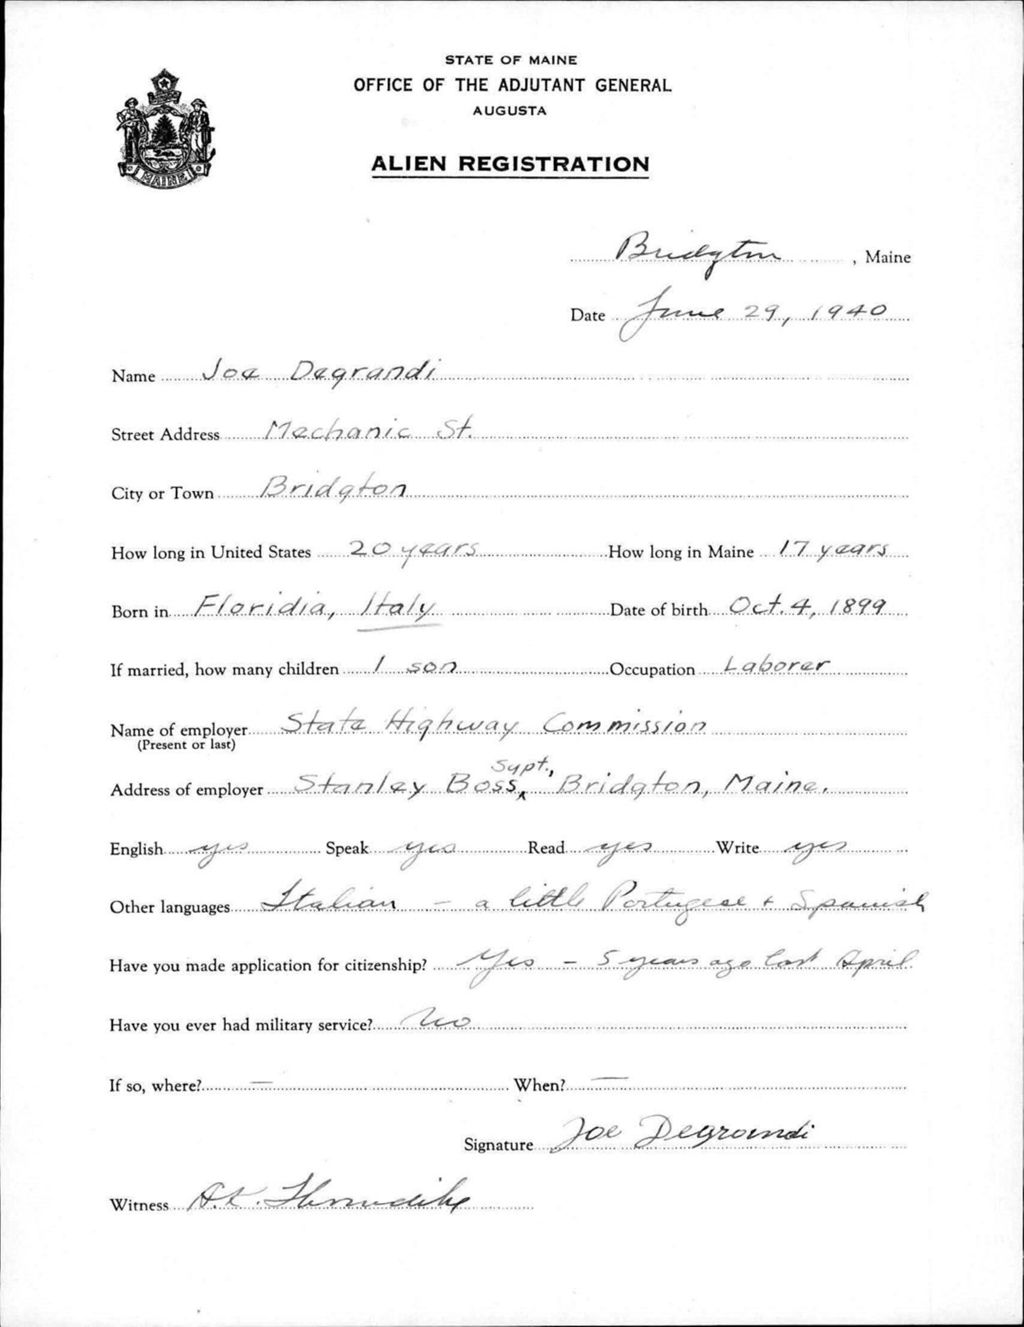 STATE OF MAINE
OFFICE OF THE ADJUTANT GENERAL
AUGUSTA
ALIEN REGISTRATION
MAINE
Bridgton, Maine
Date June 29, 1940
Name Joe Degrandi
Street Address Mechanic St.
City or Town Bridgton
How long in United States 20 years How long in Maine 17 years
Born in Floridia, Italy Date of birth Oct. 4, 1899
If married, how many children 1 son Occupation Laborer
Name of employer State Highway Commission
(Present or last)
Address of employer Stanley Boss, Supt., Bridgton, Maine.
English yes Speak yes Read yes Write yes
Other languages Italian - a little Portugese + Spanish
Have you made application for citizenship? Yes - 5 years ago last April
Have you ever had military service? No
If so, where? — When? —
Signature Joe Degrandi
Witness